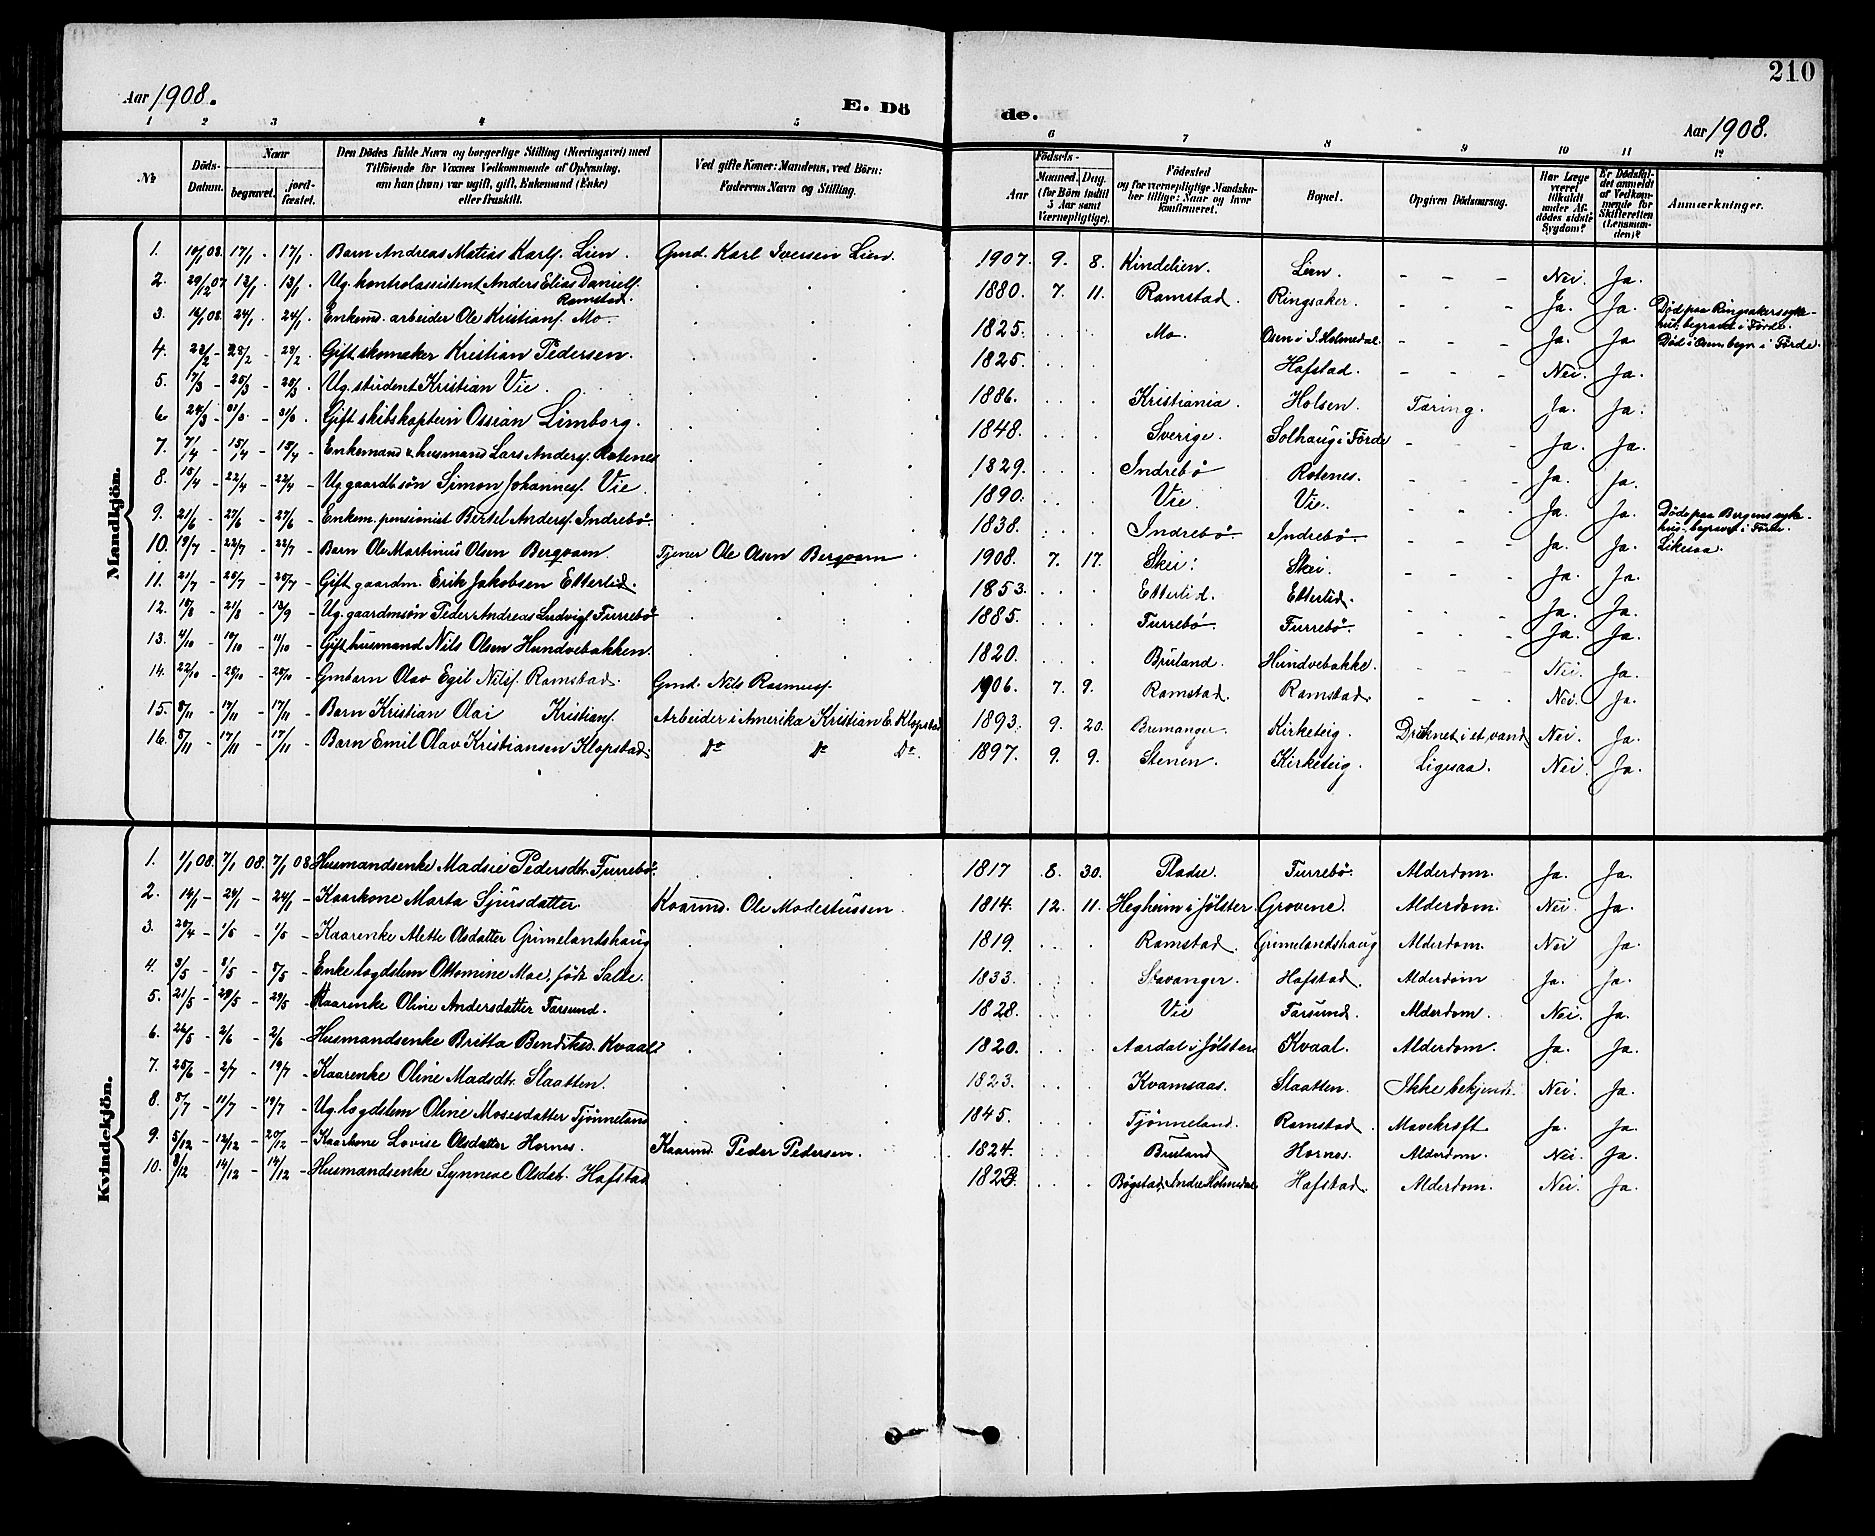 210
Aar 1908. E. Dö de. Aar 1908.
1 2 3 4 5 6 7 8 9 10 11 12
№ Döds-Datum. Naar begravet. jord-fæstet. Den Dödes fulde Navn og borgerlige Stilling (Næringsvei) med Tilföiende for Voxnes Vedkommende af Oplysning, om han (hun) var ugift, gift, Enkemand (Enke) eller fraskilt. Ved gifte Koner: Mandens, ved Börn: Faderens Navn og Stilling. Födsels- Aar Maaned. Dag. (for Börn indtil 5 Aar samt Værnepligtige). Födested og for værnepligtige Mandskaber tillige: Naar og hvor konfirmeret. Bopæl. Opgiven Dödsaarsag. Har Læge været tilkaldt under Afdödes sidste Sygdom? Er Dödsfaldet anmeldt af Vedkommende for Skifteretten (Lensmanden)? Anmærkninger.
Mandkjön.
1. 10/1 08. 17/1. 17/1. Barn Andreas Matias Karls. Lien. Gmd. Karl Iversen Lien. 1907. 9. 8. Kindelien. Lien. - - - Nei. Ja.
2. 29/12 07 13/1. 13/1. Ug. kontrolassistent Anders Elias Daniels. Ramstad. 1880. 7. 11. Ramstad. Ringsaker. - - - Ja. Ja. Död paa Ringsakers syke-hus, begravet i Förde.
3. 16/1 08. 24/1. 24/1. Enkemd. arbeider Ole Kristians. Mo. 1825. Mo. Osen i I. Holmedal. - - - Ja. Ja. Död i Osen begr. i Förde.
4. 23/2 - 28/2 - 28/2. Gift skomaker Kristian Pedersen. 1825. Hafstad. - - - Nei. Ja.
5. 17/3 - 25/3 - 25/3. Ug. student Kristian Vie. 1886. Kristiania. Holsen. Tæring. Ja. Ja.
6. 24/3 - 31/3 - 31/3 - Gift skibskaptein Ossian Limborg. 1848. Sverige. Solhaug i Förde - - Ja. Ja.
7. 7/4 - 15/4 - 15/4 - Enkemand & husmand Lars Anders. Rotenes 1829. Indrebö Rotenes. - - - Ja. Ja.
8. 15/4 - 22/4 - 22/4 - Ug. gaardbsön Simon Johannes. Vie. 1890. Vie. Vie. - - - Ja. Ja.
9. 21/6 - 27/6 - 27/6 - Enkem. pensionist Bertel Anders. Indrebö. 1838. Indrebö. Indrebö. - - - Ja. Ja. Död paa Bergens syke-hus - begravet i Förde
10. 19/7 - 22/7 - 22/7 - Barn Ole Martinius Olsen Bergvam. Tjener Ole Olsen Bergvam. 1908. 7. 17. Skei. Skei. - - - Ja. Ja. Likesaa.
11. 21/7 - 28/7 - 28/7 - Gift gaardm. Erik Jakobsen Ettertid. 1853. Ettertid. Ettertid. - - - Ja. Ja.
12. 18/8 - 21/8 - 13/9 - Ug. gaardmsön Peder Andreas Ludvigs. Furrebö 1885. Furrebö. Furrebö. - - - Ja. Ja.
13. 4/10 - 10/10 - 11/10 - Gift husmand Nils Olsen Hundvebakken. 1820. Bruland. Hundvebakke. - - - Nei. Ja.
14. 22/10 - 28/10 - 28/10 - Gmbarn Olav Egil Nils. Ramstad. Gmd. Nils Rasmus. 1906. 7. 9. Ramstad. Ramstad. - - - Nei. Ja.
15. 8/11 - 17/11 - 17/11 - Barn Kristian Olai Kristians. Arbeider i Amerika Kristian E. Klopstad 1893. 9. 20. Bremanger. Kirketeig. Druknet i et vand Nei. Ja.
16. 8/11 - 17/11 - 17/11 - Barn Emil Olav Kristiansen Klopstad. Do Do Do. 1897. 9. 9. Stenen. Kirketeig. Ligesaa. Nei. Ja.
Kvindekjön.
1. 1/1 08. 7/1 08. 7/1 08 Husmandsenke Madsie Pedersdtr. Furrebö. 1817 8. 30. Furrebö. Alderdom. Ja. Ja.
2. 14/1 - 24/1 - 24/1 - Kaarkone Marta Sjursdatter Kaarmd. Ole Modestussen. 1814. 12. 11. Hegheim i Jölster Grovene. Alderdom. Nei. Ja.
3. 20/4 - 1/5 - 1/5 - Kaarenke Alette Olsdatter Grimelandshaug 1819. Ramstad. Grimelandshaug Alderdom. Nei Ja.
4. 3/5 - 8/5 - 8/5 - Enke logdslem Ottomine Moe, född Salte. 1833. Stavanger. Hafstad. Alderdom Ja. Ja.
5. 21/5 - 29/5 - 29/5 - Kaarenke Oline Andersdatter Farsund. 1828. Vie Farsund. Alderdom. Nei. Ja.
6. 26/5 - 2/6 - 2/6 - Husmandsenke Britta Bendiksd. Kvaal. 1820. Aardal i Jölster Kvaal. Alderdom. Ja. Ja.
7. 25/6 - 2/7 - 19/7 - Kaarenke Oline Madsdtr. Slaatten. 1823. Kvamsaas. Slaatten. Ikke bekjendt. Nei. Ja.
8. 5/7 - 11/7 - 19/7 - Ug. logdslem Oline Mosesdatter Tjönneland 1845. Tjönneland. Ramstad. Mavekræft. Ja. Ja.
9. 5/12 - 12/12 - 20/12 - Kaarkone Lovise Olsdatter Hornes. Kaarmd. Peder Pedersen. 1824. Bruland Hornes. Alderdom. Nei. Ja.
10. 8/12 - 14/12 - 14/12 - Husmandsenke Synneve Olsdtr. Hafstad 1823. Bögstad, Indre Holmedal Hafstad. Alderdom. Nei. Ja.